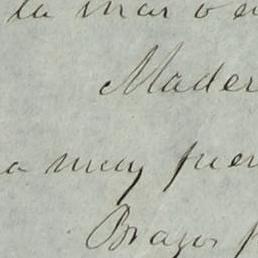 la mar o e
Mader
a muy fuer
Brazos f